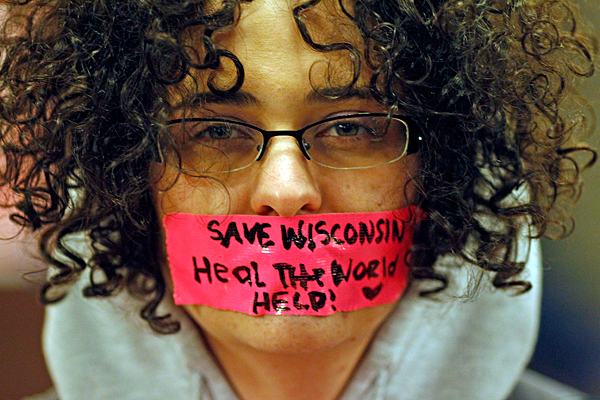 SAVE WISCONSIN
HeaL THe WORLD
HELP!